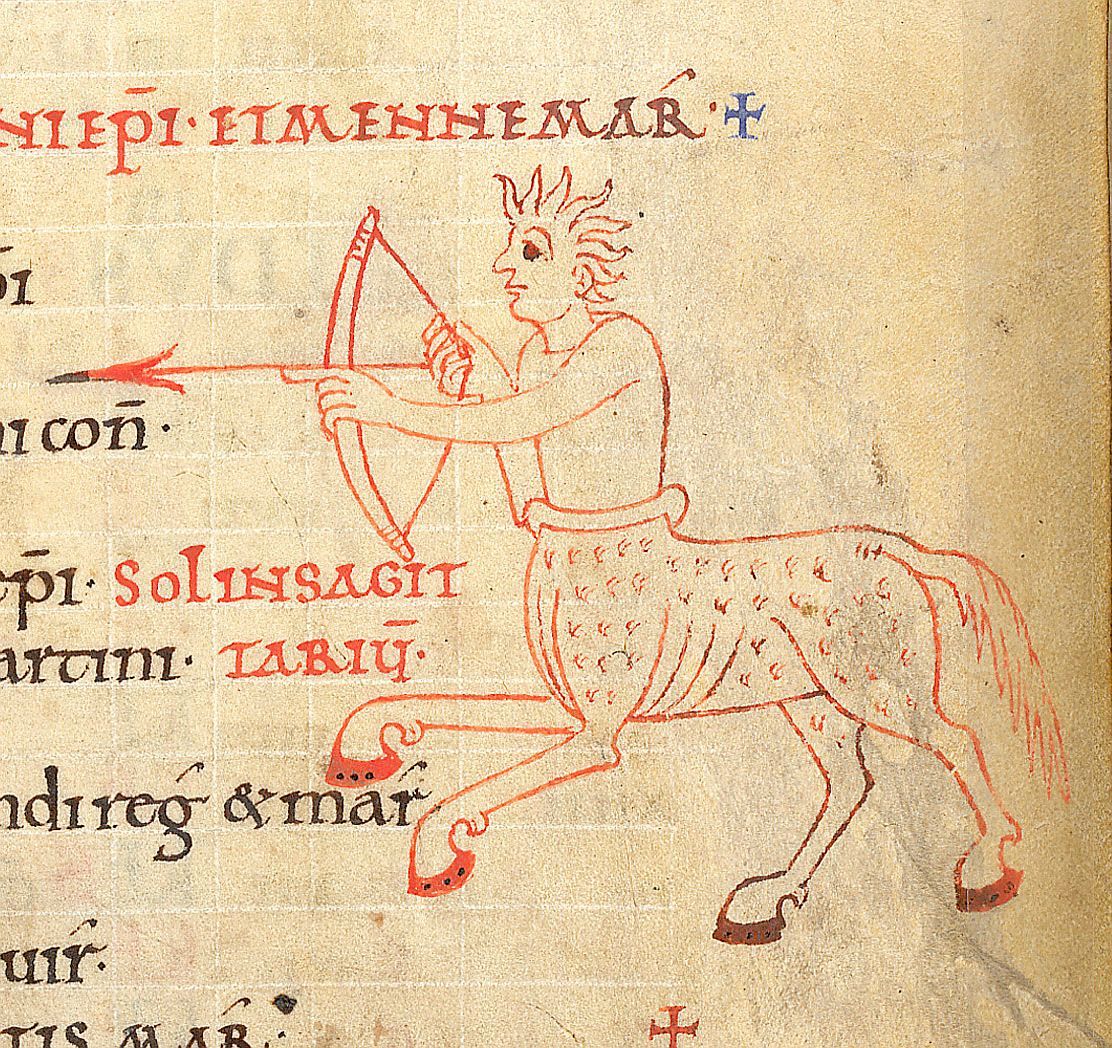 NI EP̄I · ET MENNE MAR̄ · ✠
p̄i
ni con̄ ·
ep̄i · SOL IN SAGIT
artini · TARIŪ ·
ndi reḡ & mar̄
uir̄ ·
TIS MAR̄ ·
✠